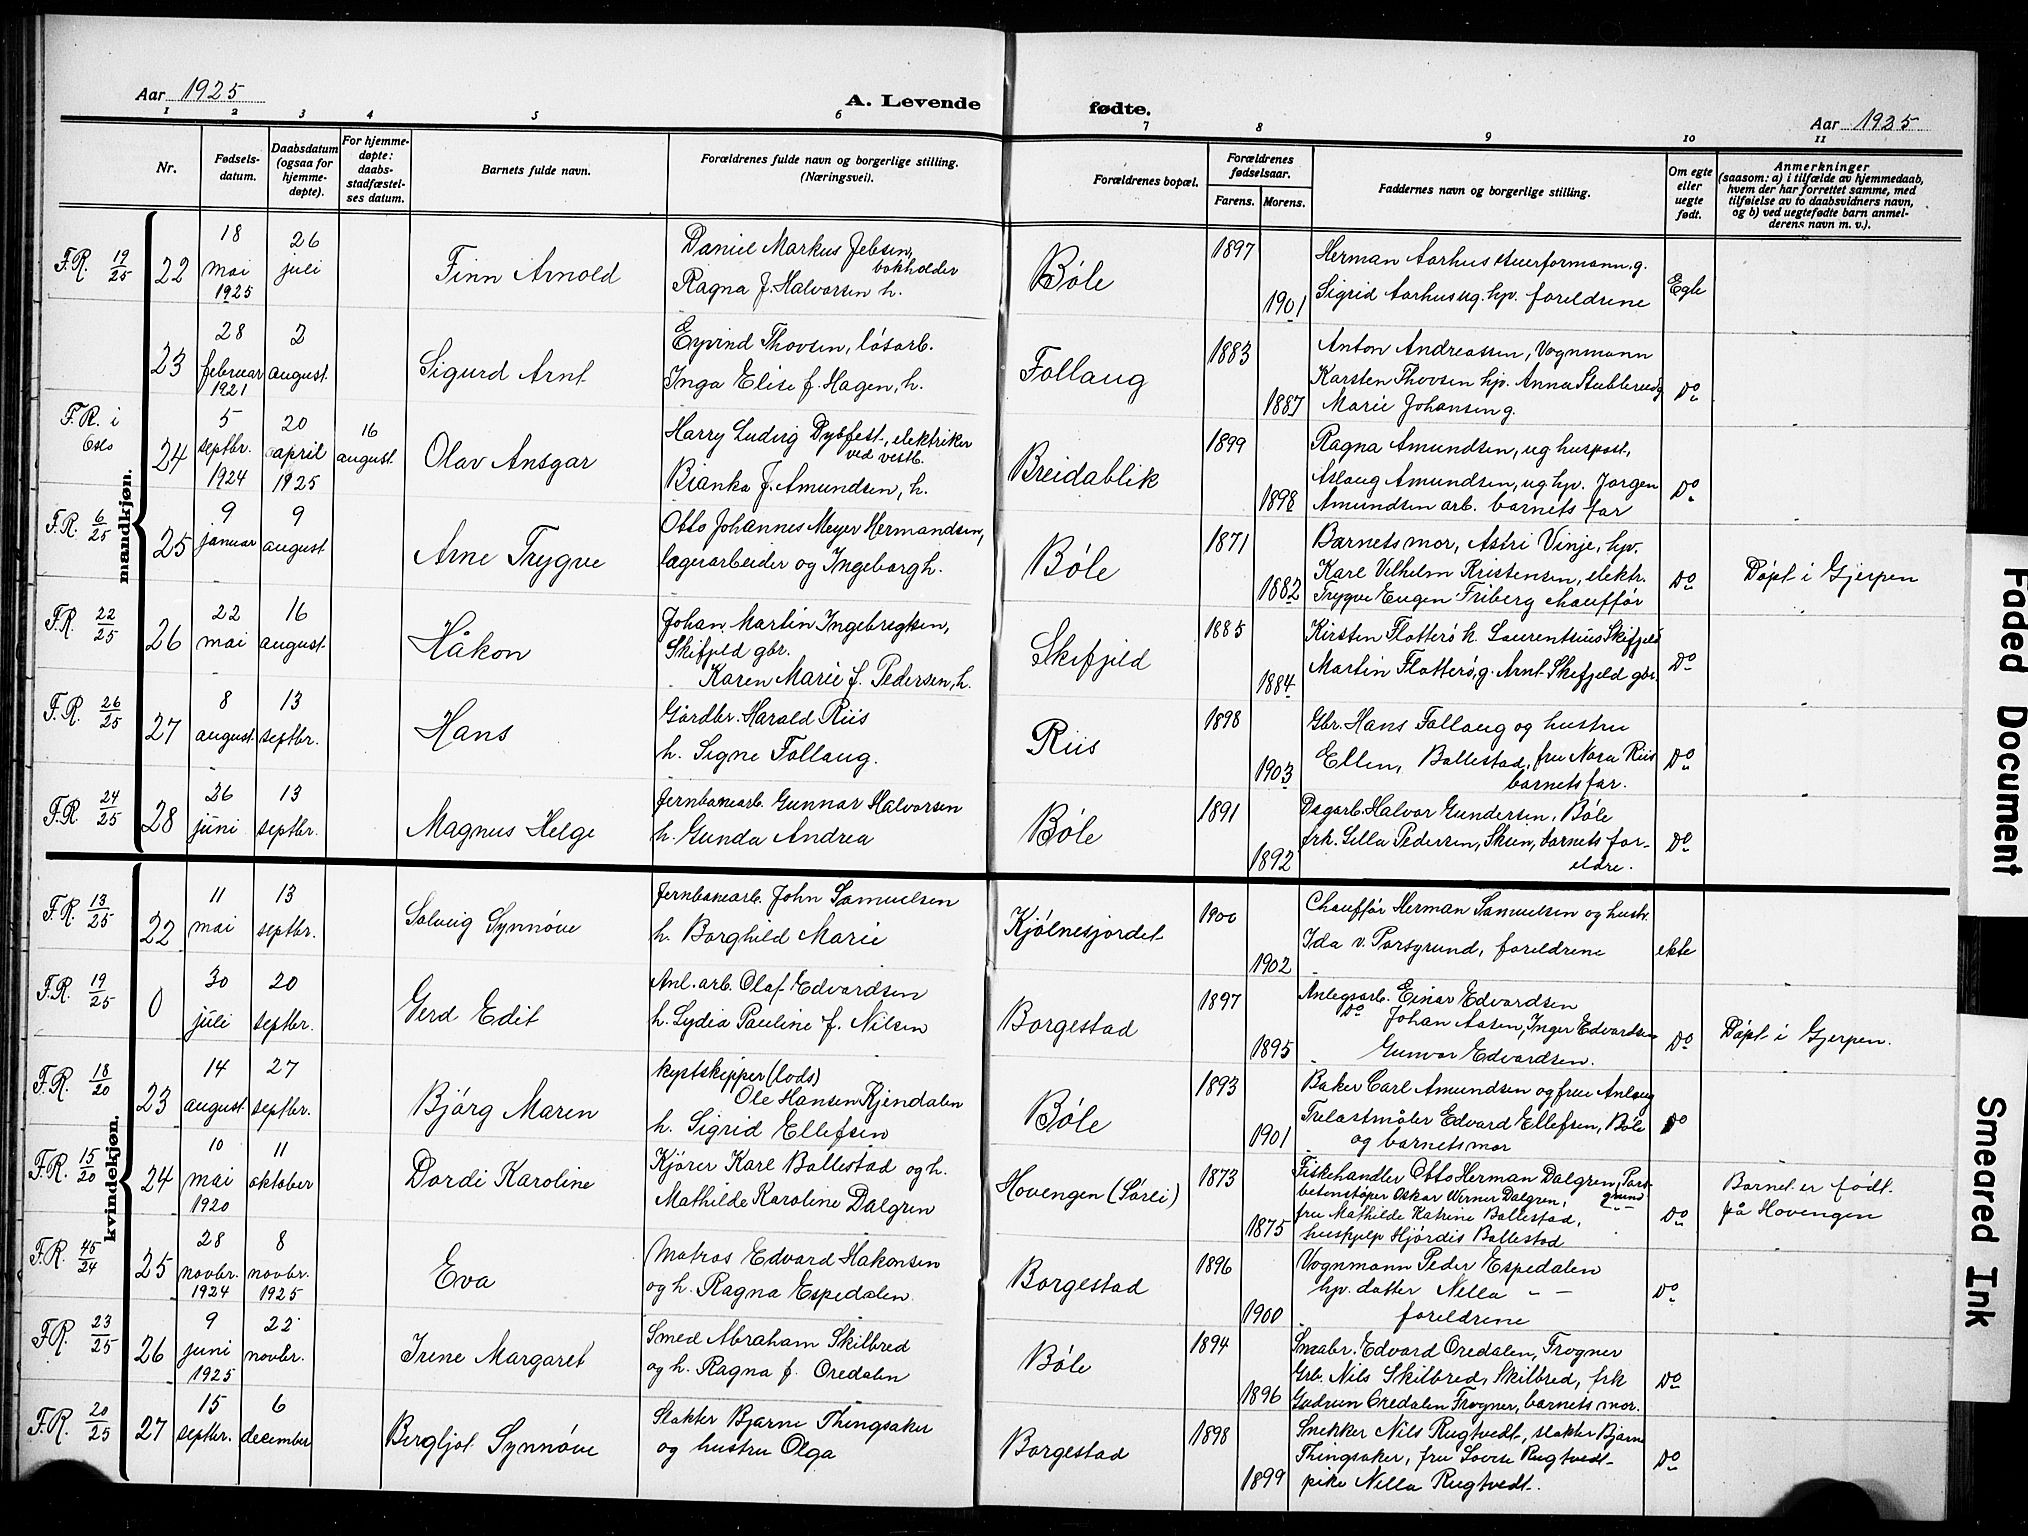 Aar 1925
A. Levende
fødte.
Aar 1925
1 2 3 4 5 6 7 8 9 10 11
Nr.
Fødsels-
datum.
Daabsdatum
(ogsaa for
hjemme-
døpte).
For hjemme-
døpte:
daabs-
stadfæstel-
ses datum.
Barnets fulde navn.
Forældrenes fulde navn og borgerlige stilling.
(Næringsvei).
Forældrenes bopæl.
Forældrenes
fødselsaar.
Farens. Morens.
Faddernes navn og borgerlige stilling.
Om egte
eller
uegte
født.
Anmerkninger
(saasom: a) i tilfælde av hjemmedaab,
hvem der har forrettet samme, med
tilføielse av to daabsvidners navn,
og b) ved uegtefødte barn anmel-
derens navn m. v.).
mandkjøn.
F.R. 19/25
22
18
mai
1925
26
juli
Finn Arnold
Daniel Markus Jebsen,
bokholder
Ragna f. Halvorsen h.
Bøle
1897
1901
Herman Aarhus stuerformann, g.
Sigrid Aarhus ug. hp. foreldrene
Egte
23
28
februar
1921
2
august
Sigurd Arnt
Eyvind Thovsen, løsarb.
Inga Elise f. Hagen, h.
Follaug
1883
1887
Anton Andreassen, Vognmann
Karsten Thovsen hp. Anna Stubberud g
Marie Johansen g.
Do
F.R. i
Oslo
24
5
septbr.
1924
20
april
1925
16
august
Olav Ansgar
Harry Ludvig Dybfest, elektriker
ved vestb.
Bianka f. Amundsen, h.
Breidablik
1899
1898
Ragna Amundsen, ug huspost,
Aslaug Amundsen, ug hp. Jørgen
Amundsen arb. barnets far
Do
F.R. 6/25
25
9
januar
9
august
Arne Trygve
Otto Johannes Meyer Hermandsen,
lagerarbeider og Ingeborg h.
Bøle
1871
1882
Barnets mor, Astri Vinje, hp.
Karl Vilhelm Kristensen, elektr.
Trygve Eugen Friberg chauffør
Do
Døpt i Gjerpen
F.R. 22/25
26
22
mai
16
august
Håkon
Johan Martin Ingebregtsen,
Skifjeld gbr.
Karen Marie f. Pedersen, h.
Skifjeld
1885
1884
Kirsten Flotterø h. Laurentsius Skifjeld
Martin Flotterø, g. Arnt Skifjeld gbr.
Do
F.R. 26/25
27
8
august
13
septbr.
Hans
Gårdbr. Harald Riis
h. Signe Follaug.
Riis
1898
1903
Gbr. Hans Follaug og hustru
Ellen, Ballestad, fru Nora Riis
barnets far.
Do
F.R. 24/25
28
26
juni
13
septbr.
Magnus Helge
Jernbanearb. Gunnar Halvorsen
h. Gunda Andrea
Bøle
1891
1892
Dagarb. Halvor Gundersen, Bøle
frk. Gilla Pedersen, Skien, barnets for-
eldre.
Do
kvindekjøn.
F.R. 13/25
22
11
mai
13
septbr.
Solveig Synnøve
Jernbanearb. John Samuelsen
h. Borghild Marie
Kjølnesjordet
1900
1902
Chauffør Herman Samuelsen og hustr.
Ida v. Porsgrund, foreldrene
ekte
F.R. 19/25
0
30
juli
20
septbr.
Gerd Edit
Anl. arb. Olaf Edvardsen
h. Lydia Pauline f. Nilsen
Borgestad
1897
1895
Anlegsarb. Einar Edvardsen
do Johan Aasen, Inger Edvardsen
Gunvor Edvardsen.
Do
Døpt i Gjerpen.
F.R. 18/20
23
14
august
27
septbr.
Bjørg Maren
kystskipper (lods)
Ole Hansen Kjendalen
h. Sigrid Ellefsen
Bøle
1893
1901
Baker Carl Amundsen og frue Anlaug
Trelastmåler Edvard Ellefsen, Bøle
og barnets mor
Do
F.R. 15/20
24
10
mai
1920
11
oktober
Dordi Karoline
Kjører Karl Ballestad og h.
Mathilde Karoline Dalgren
Hovengen (Sørli)
1873
1875
Fiskehandler Otto Herman Dalgren, Pors-
grund
betonstøper Oskar Werner Dalgren, - " -
fru Mathilde Katrine Ballestad,
hushjelp Hjørdis Ballestad
Do
Barnet er født
på Hovengen
F.R. 45/24
25
28
novbr.
1924
8
novbr.
1925
Eva
Matros Edvard Hakonsen
og h. Ragna Espedalen
Borgestad
1896
1900
Vognmann Peder Espedalen
hp. datter Nella - " -
foreldrene
Do
F.R. 23/25
26
9
juni
1925
22
novbr.
Irene Margaret
Smed Abraham Skilbred
og h. Ragna f. Oredalen
Bøle
1894
1896
Småbr. Edvard Oredalen, Frogner
Grb. Nils Skilbred, Skilbred, frk
Gudrun Oredalen Frogner, barnets mor.
Do
F.R. 20/25
27
15
septbr.
6
december
Bergljot Synnøve
Slakter Bjarne Thingsaker
og hustru Olga
Borgestad
1898
1899
Snekker Nils Rugtvedt, slakter Bjarne
Thingsaker, fru Lovise Rugtvedt
pike Nella Rugtvedt.
Do
Faded Document
Smeared Ink